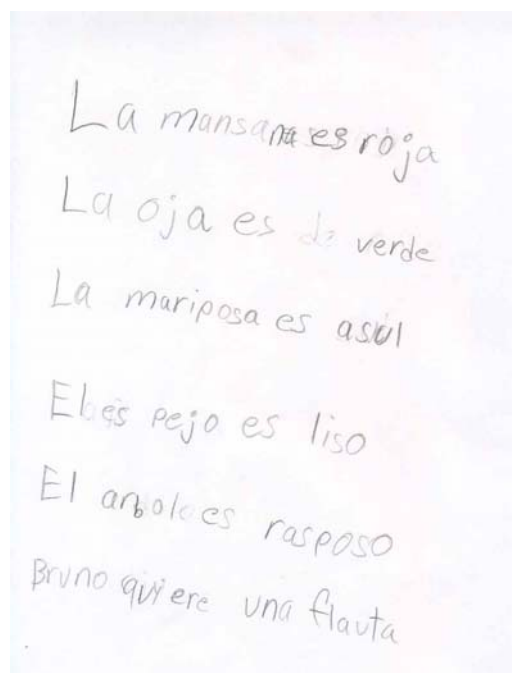 La mansana es roja
La oja es verde
La mariposa es asul
El es pejo es liso
El arbol es rasposo
Bruno quiere una flauta